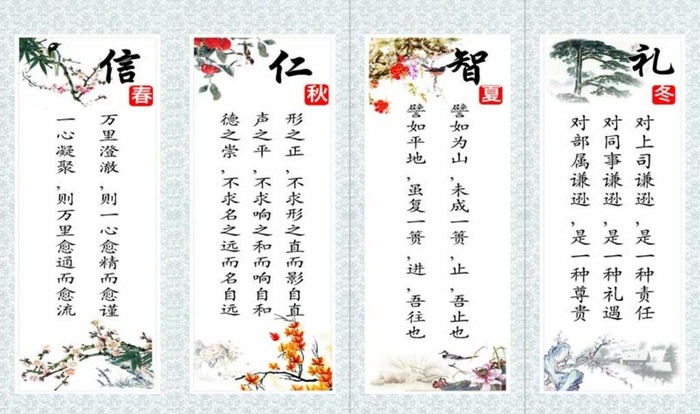 信
春
万里澄澈,则一心愈精而愈谨
一心凝聚,则万里愈通而愈流
仁
秋
形之正,不求形之直而影自直
声之平,不求响之和而响自和
德之崇,不求名之远而名自远
智
夏
譬如为山,未成一篑,止,吾止也
譬如平地,虽复一篑,进,吾往也
礼
冬
对上司谦逊,是一种责任
对同事谦逊,是一种礼遇
对部属谦逊,是一种尊贵